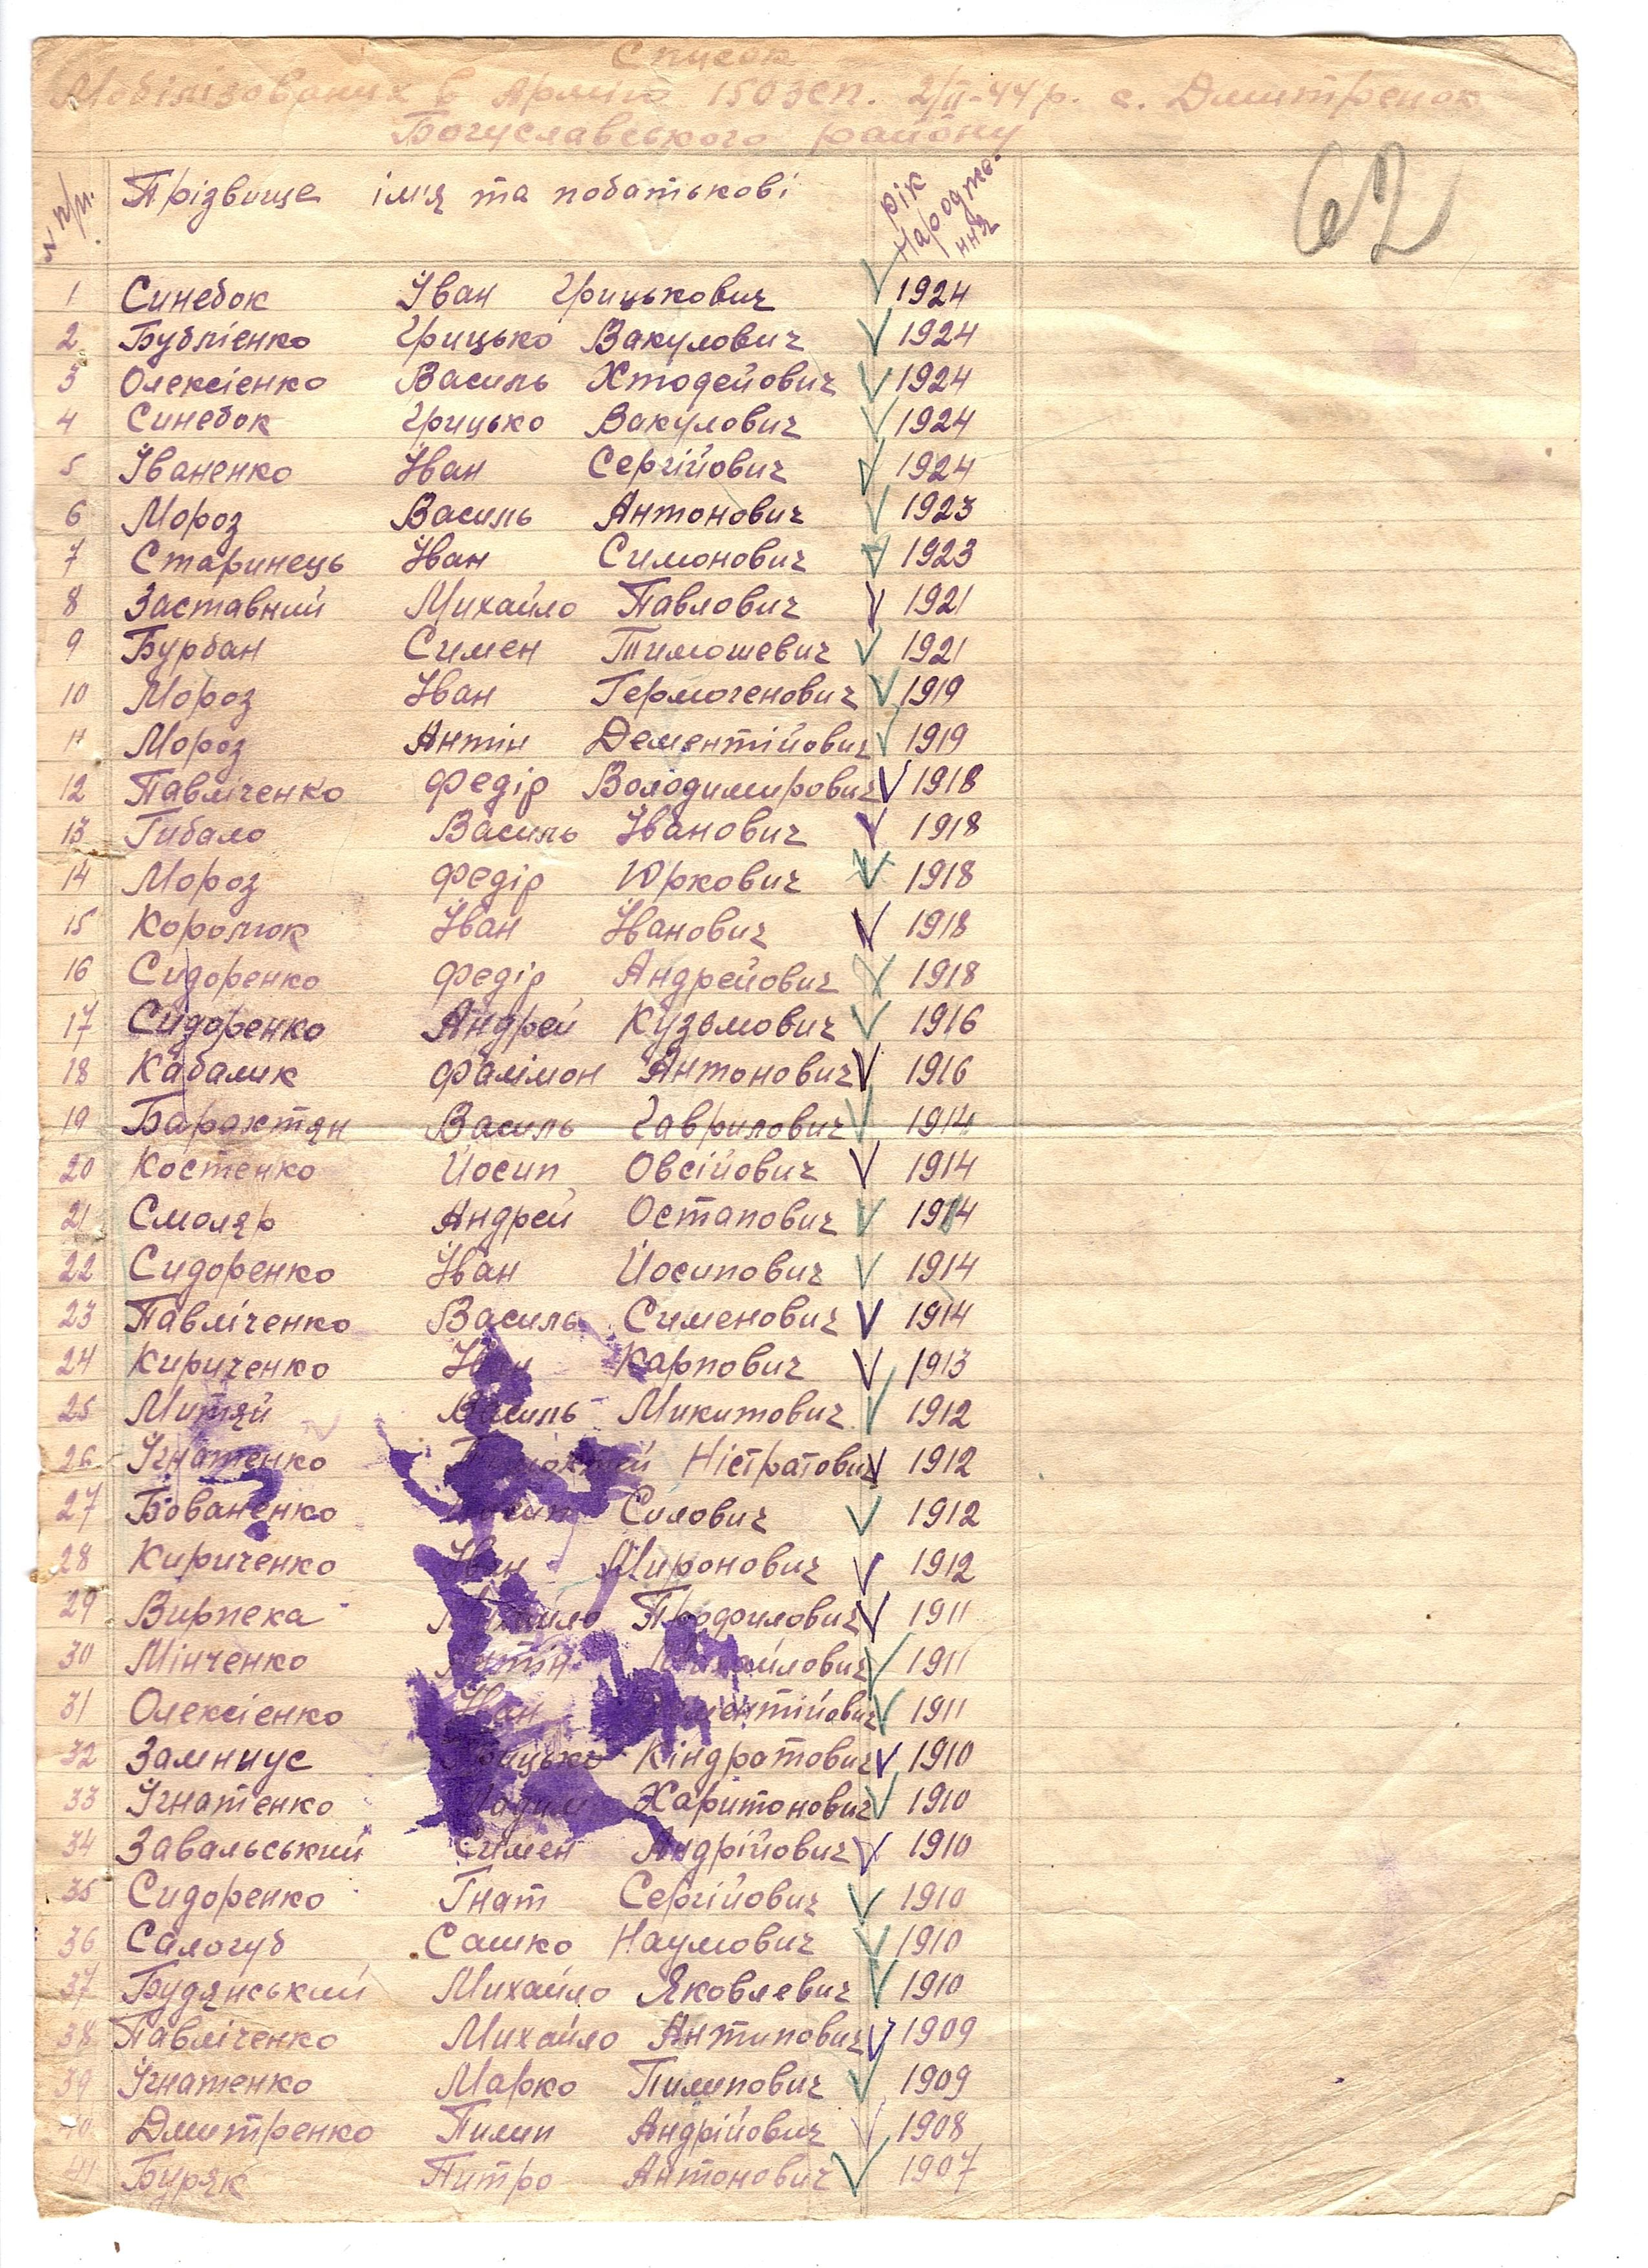 Список
Мобілізованих в Армію 150зсп. 2/II-44р. с. Дмитренок
Богуславського району
62
№ п/п. Прізвище ім'я та побатькові рік народже-
ння
1 Синебок Іван Грицькович 1924
2 Бублієнко Грицько Вакулович 1924
3 Олексієнко Василь Хтодейович 1924
4 Синебок Грицько Вакулович 1924
5 Іваненко Іван Сергійович 1924
6 Мороз Василь Антонович 1923
7 Старинець Іван Симонович 1923
8 Заставний Михайло Павлович 1921
9 Бурбан Симен Тимошевич 1921
10 Мороз Іван Гермогенович 1919
11 Мороз Антін Дементійович 1919
12 Павліченко Федір Володимирович 1918
13 Гибало Василь Іванович 1918
14 Мороз Федір Юркович 1918
15 Королюк Іван Іванович 1918
16 Сидоренко Федір Андрейович 1918
17 Сидоренко Андрей Кузьмович 1916
18 Кабалик Фалімон Антонович 1916
19 Барахтян Василь Гаврилович 1914
20 Костенко Йосип Овсійович 1914
21 Смоляр Андрей Остапович 1914
22 Сидоренко Іван Йосипович 1914
23 Павліченко Василь Сименович 1914
24 Кириченко Іван Карпович 1913
25 Митяй Василь Микитович 1912
26 Ігнатенко Ністратович 1912
27 Бованенко Силович 1912
28 Кириченко Іван Миронович 1912
29 Вирпека Михайло Профилович 1911
30 Мінченко Антін Михайлович 1911
31 Олексієнко Іван Дементійович 1911
32 Замниус Грицько Кіндратович 1910
33 Ігнатенко Харитонович 1910
34 Завальський Симен Андрійович 1910
35 Сидоренко Гнат Сергійович 1910
36 Салогуб Сашко Наумович 1910
37 Будянський Михайло Яковлевич 1910
38 Павліченко Михайло Антипович 1909
39 Ігнатенко Марко Пилипович 1909
40 Дмитренко Пилип Андрійович 1908
41 Буряк Питро Антонович 1907